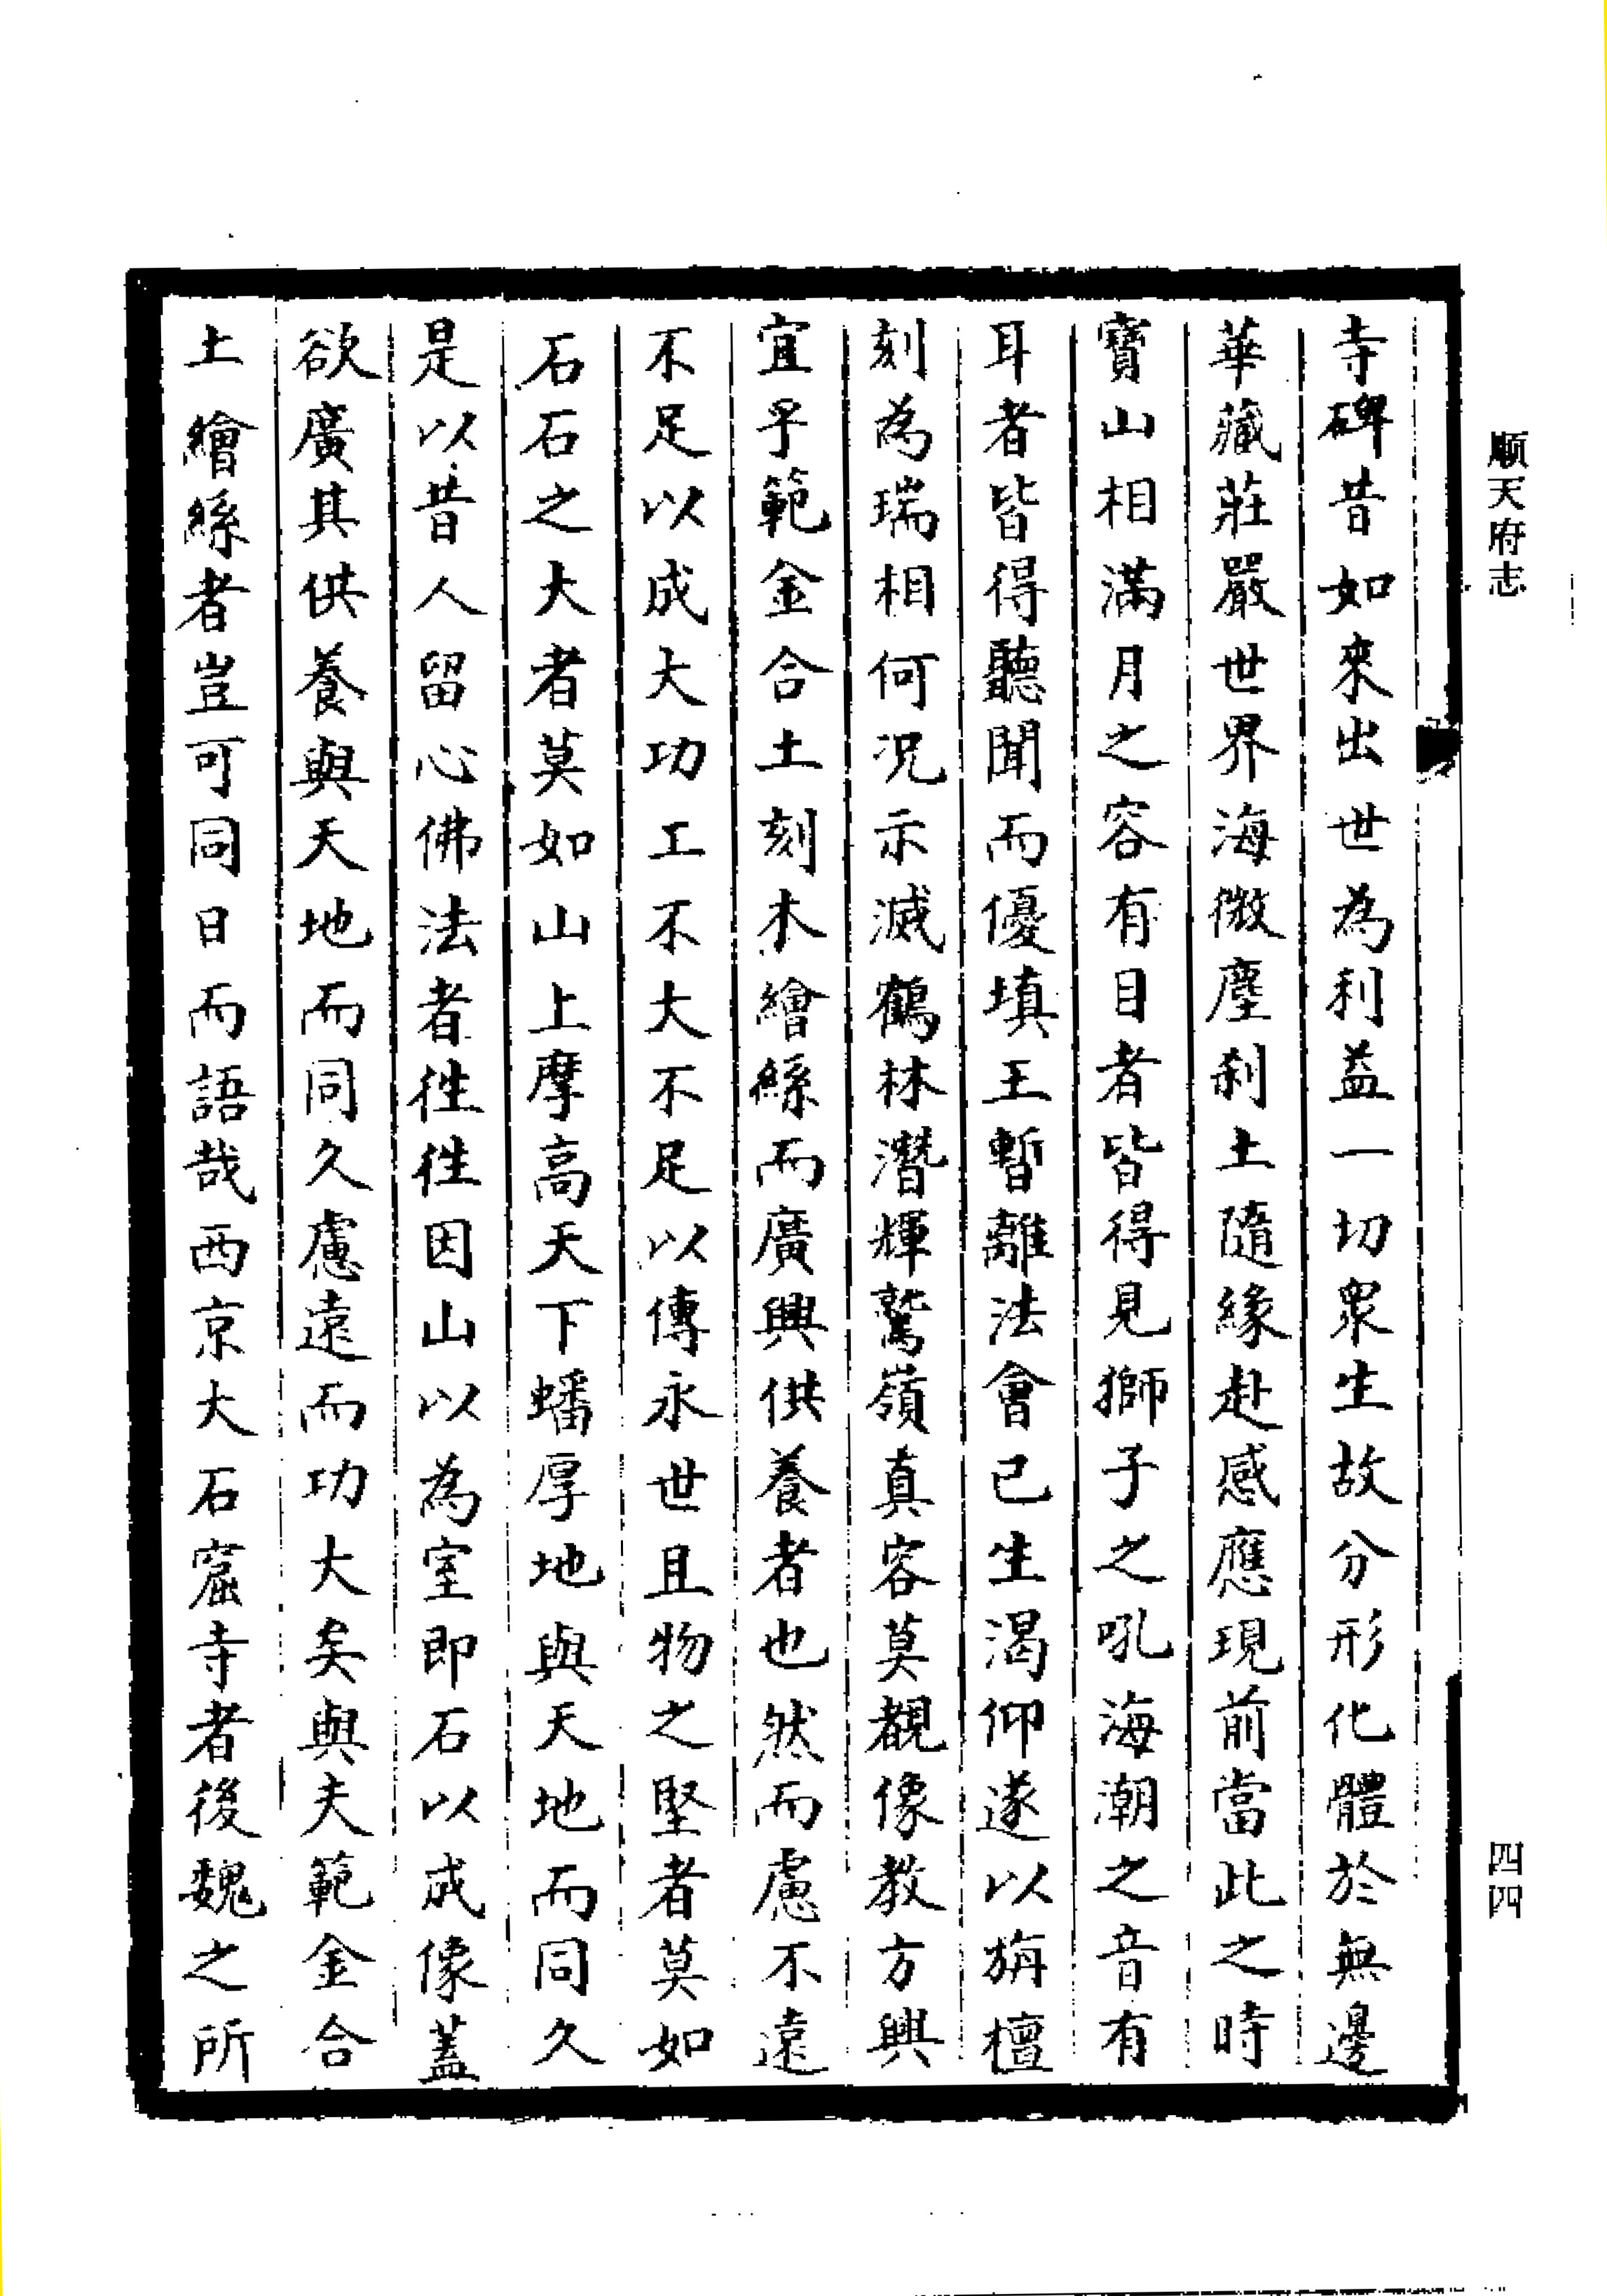 順天府志
寺碑昔如來出世為利益一切衆生故分形化體於無邊
華藏莊嚴世界海微塵刹土隨緣赴感應現前當此之時
寶山相滿月之容有目者皆得見獅子之吼海潮之音有
耳者皆得聽聞而優填王暫離法會已生渴仰遂以旃檀
刻為瑞相何況示滅鶴林潛輝鷲嶺真容莫覩像教方興
宜乎範金合土刻木繪絲而廣興供養者也然而慮不遠
不足以成大功工不大不足以傳永世且物之堅者莫如
石石之大者莫如山上摩高天下蟠厚地與天地而同久
是以昔人留心佛法者徃徃因山以為室即石以成像蓋
欲廣其供養與天地而同久慮遠而功大矣與夫範金合
土繪絲者豈可同日而語哉西京大石窟寺者後魏之所
四四